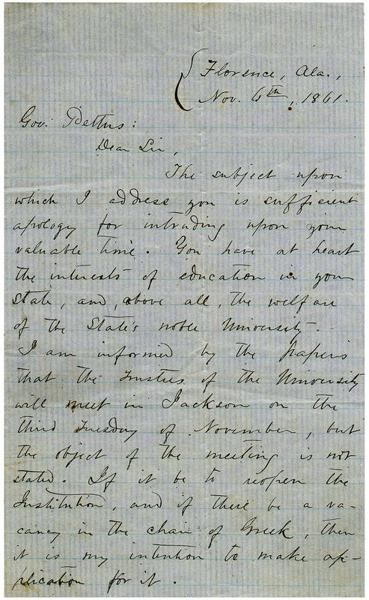 Florence, Ala.,
Nov. 6th, 1861.
Gov. Pettus:
Dear Sir,
The subject upon
which I address you is sufficient
apology for intruding upon your
valuable time. You have at heart
the interests of education in your
State, and, above all, the welfare
of the State's noble University.
I am informed by the papers
that the trustees of the University
will meet in Jackson on the
third Tuesday of November, but
the object of the meeting is not
stated. If it be to reopen the
Institution, and if there be a va-
cancy in the chair of Greek, then
it is my intention to make ap-
plication for it.